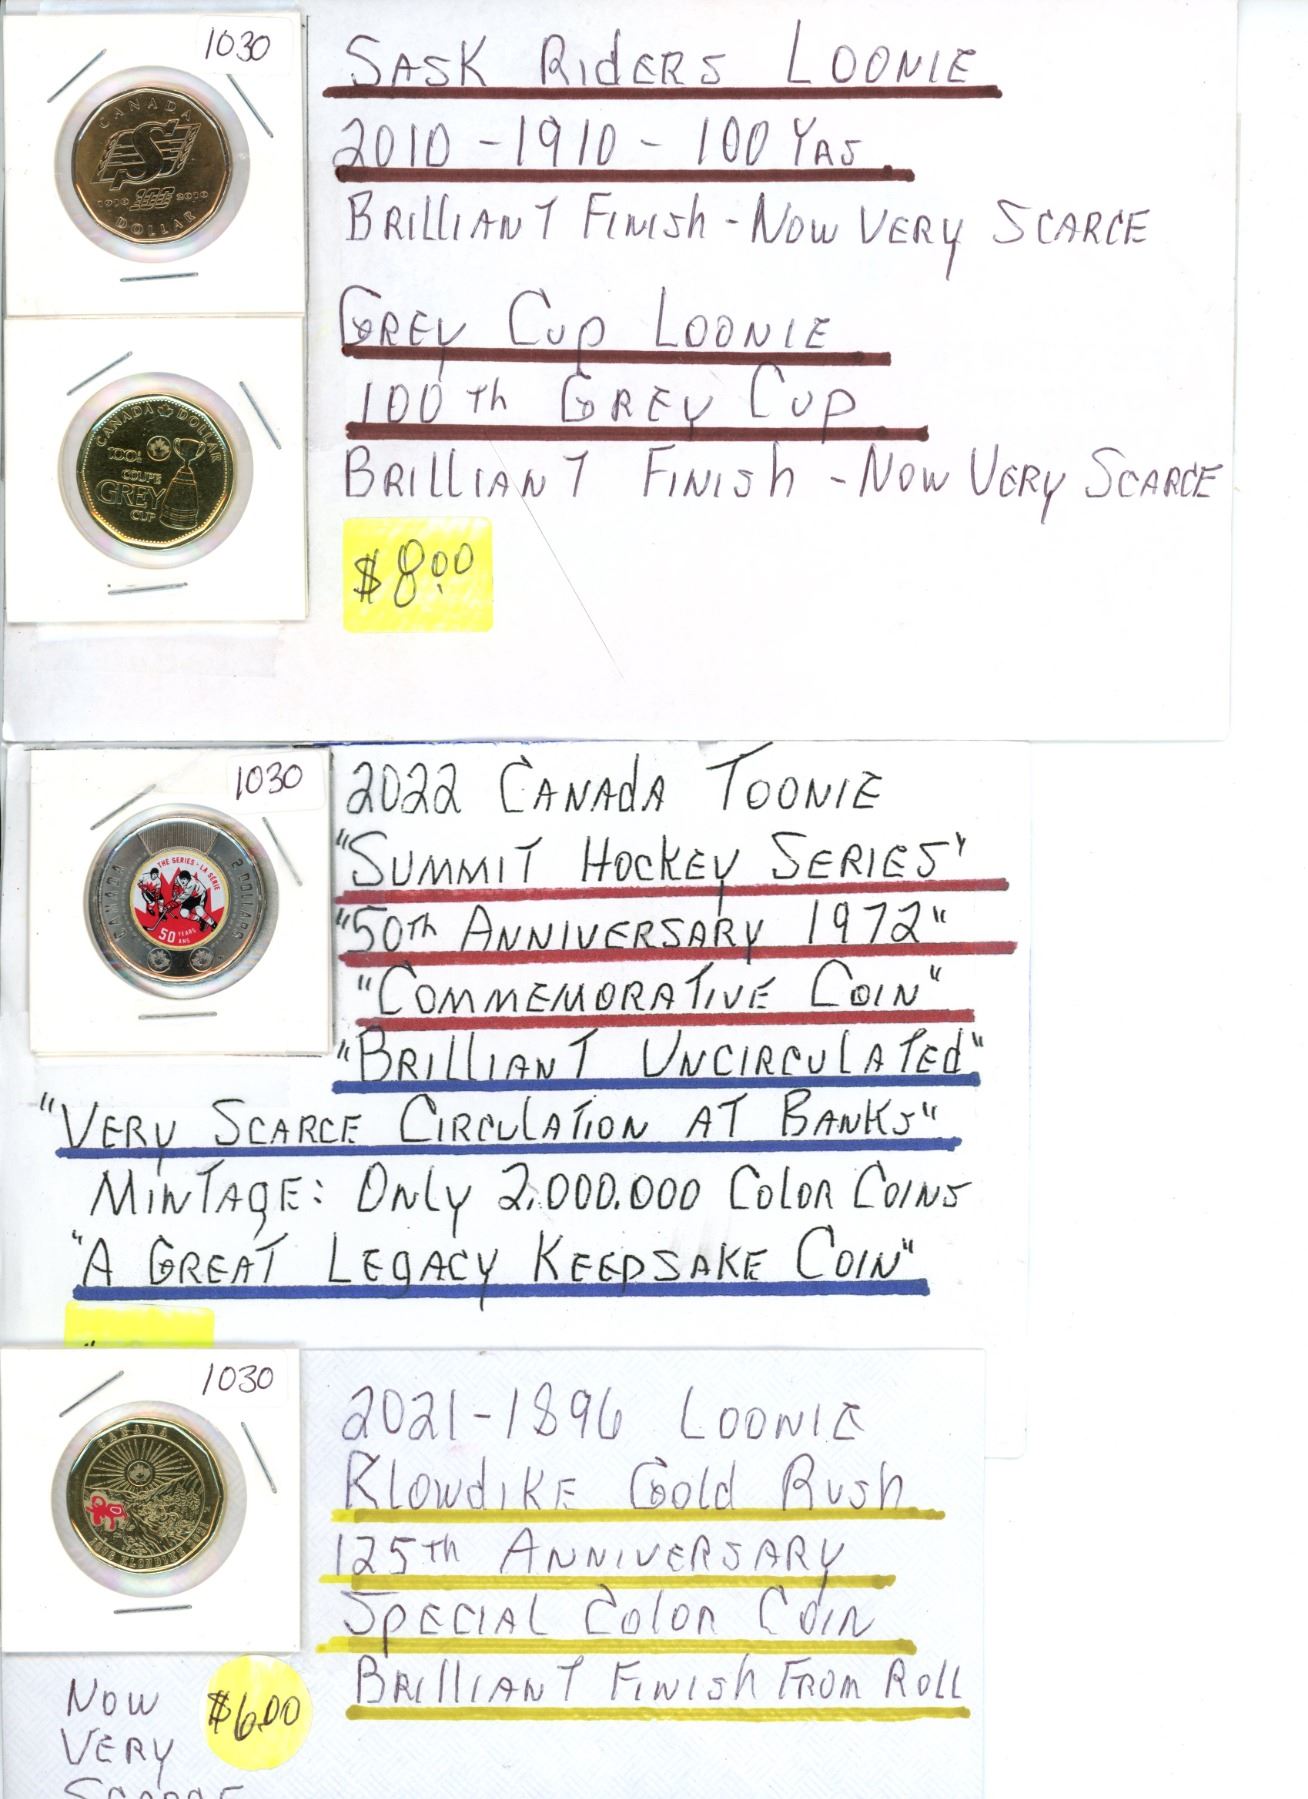 1030
CANADA
1910 100 2010
DOLLAR
SASK RIDERS LOONIE
2010 - 1910 - 100 YRS
BRILLIANT FINISH - NOW VERY SCARCE
CANADA DOLLAR
100th
COUPE
GREY
CUP
GREY CUP LOONIE
100 th GREY CUP
BRILLIANT FINISH - NOW VERY SCARCE
$8.00
1030
CANADA
2 DOLLARS
THE SERIES • LA SÉRIE
50 YEARS
ANS
2022 CANADA TOONIE
"SUMMIT HOCKEY SERIES"
"50th ANNIVERSARY 1972"
"COMMEMORATIVE COIN"
"BRILLIANT UNCIRCULATED"
"VERY SCARCE CIRCULATION AT BANKS"
MINTAGE: ONLY 2,000.000 COLOR COINS
"A GREAT LEGACY KEEPSAKE COIN"
1030
CANADA
KLONDIKE
2021-1896 LOONIE
KLONDIKE GOLD RUSH
125th ANNIVERSARY
SPECIAL COLOR COIN
BRILLIANT FINISH FROM ROLL
NOW
VERY
SCARCE
$6.00